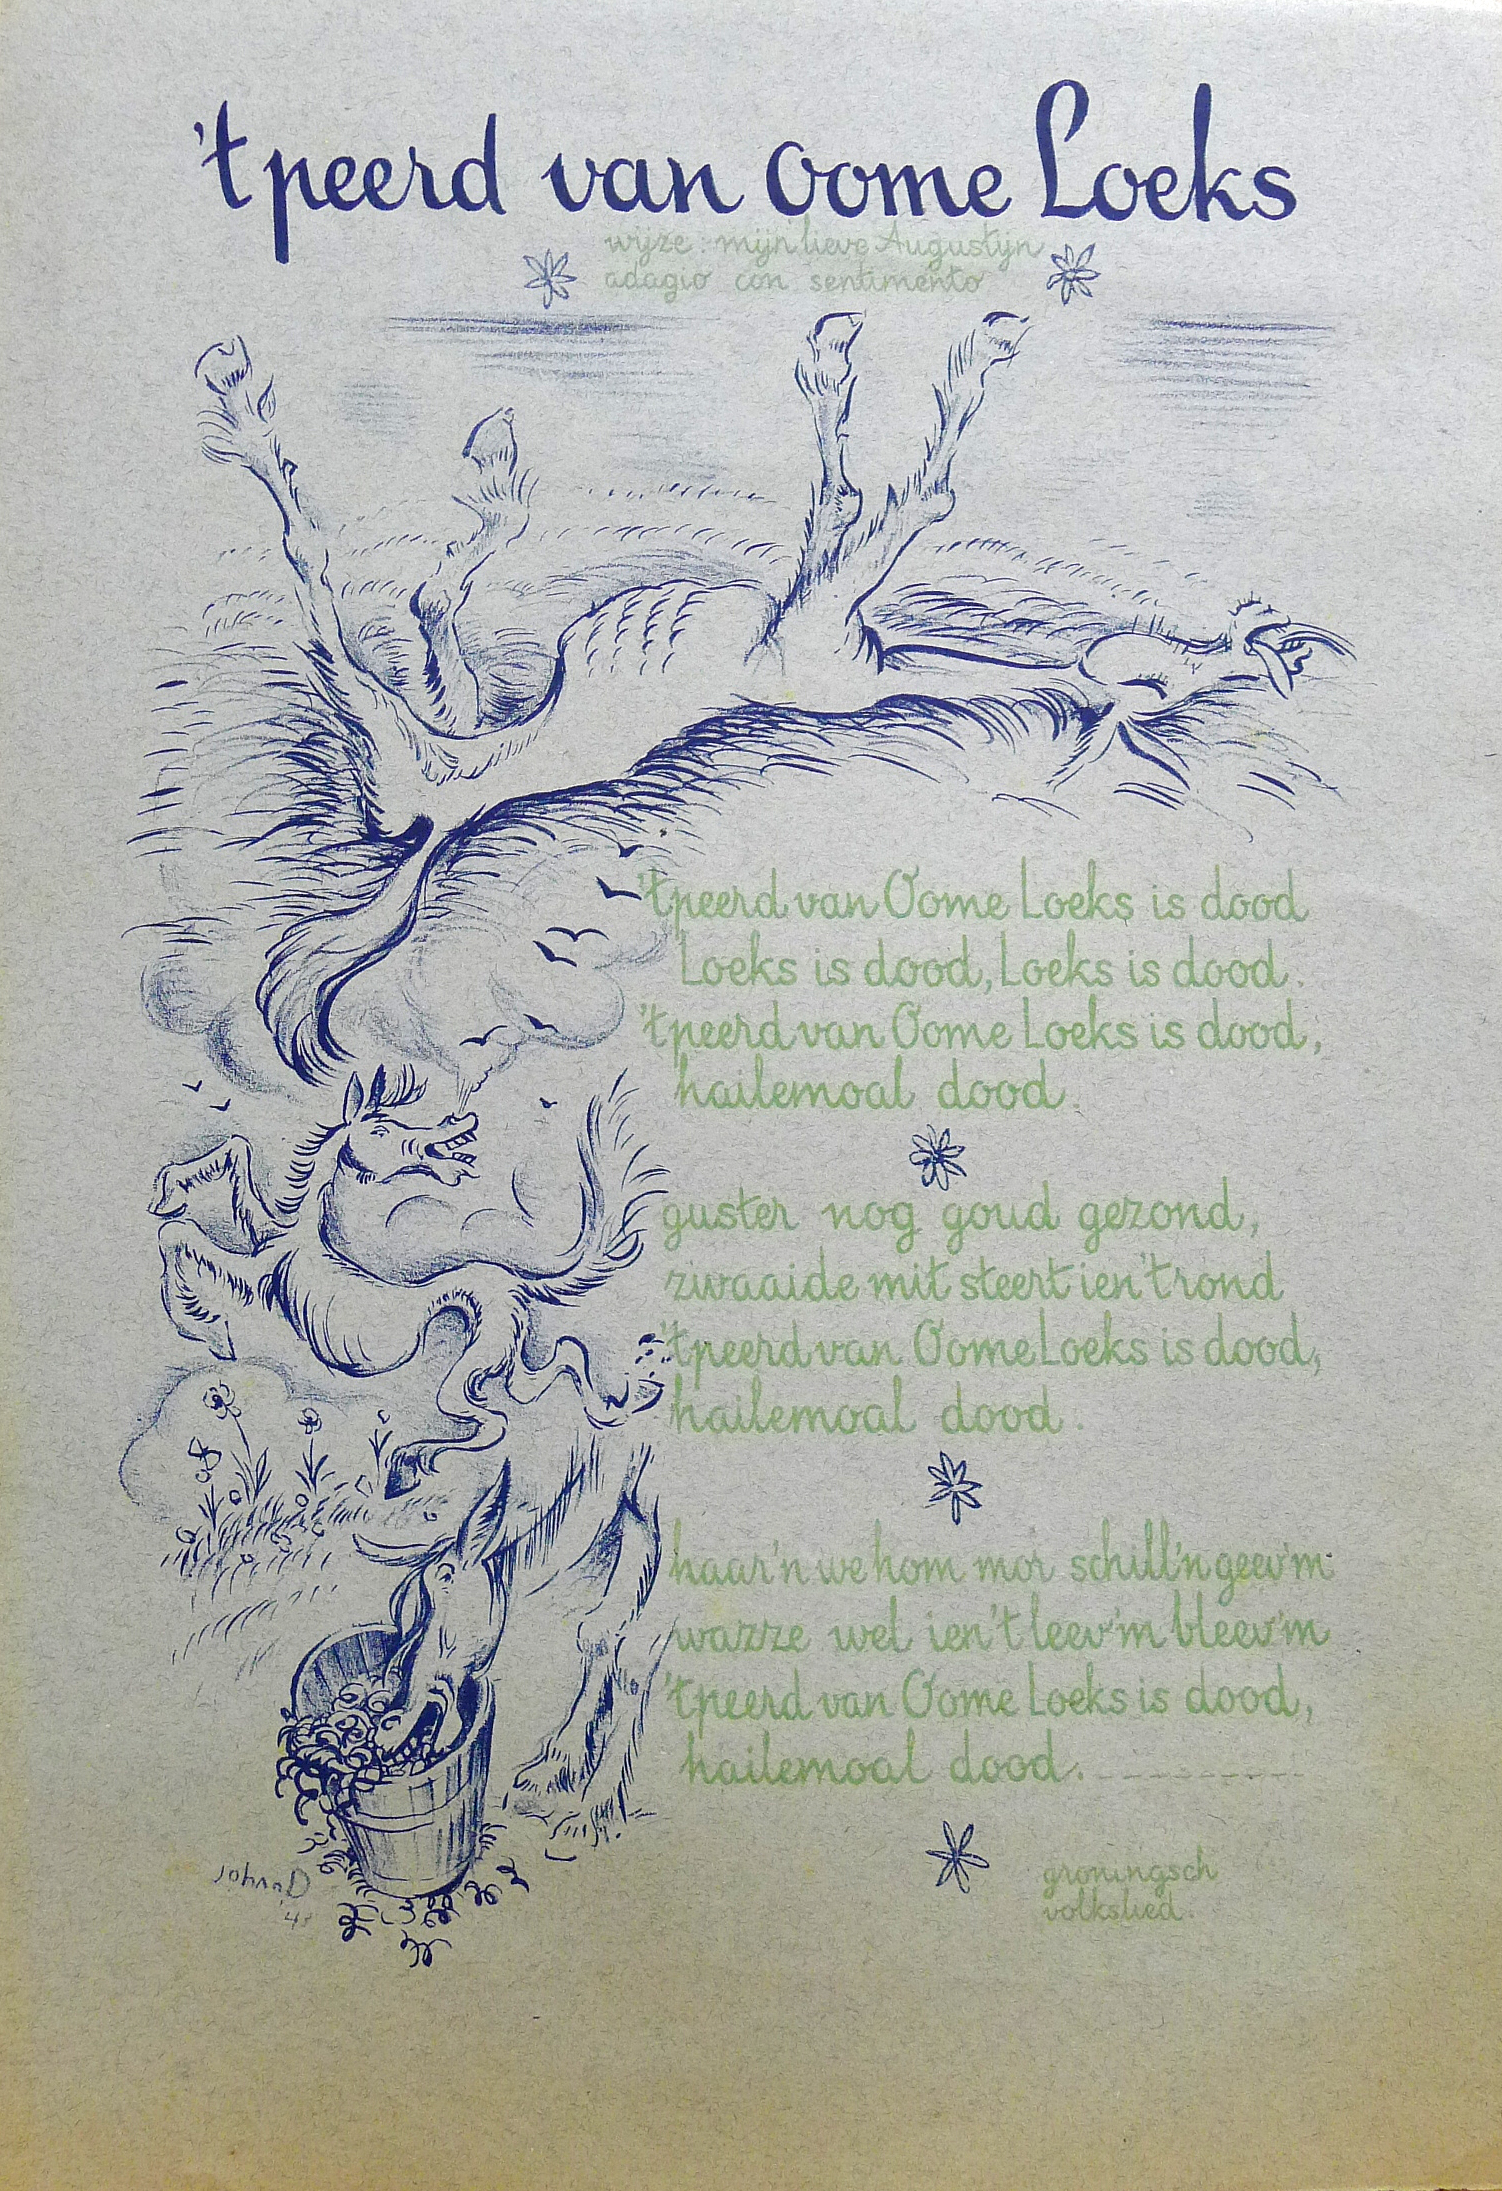 't peerd van Oome Loeks
wijze: mijn lieve Augustijn
adagio con sentimento
't peerd van Oome Loeks is dood
Loeks is dood, Loeks is dood.
't peerd van Oome Loeks is dood,
hailemoal dood.
guster nog goud gezond,
zwaaide mit steert ien 't rond
't peerd van Oome Loeks is dood,
hailemoal dood.
haar'n we hom mor schill'n geev'm
wazze wel ien 't leev'm bleev'm
't peerd van Oome Loeks is dood,
hailemoal dood.
groningsch
volkslied.
Johan D